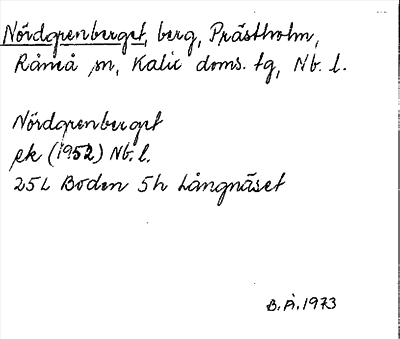 Nördgrenberget, berg, Prästholm,
Råneå sn, Kalix doms. tg, Nb. l.
Nördgrenberget
ek (1952) Nb. l.
25L Boden 5h Långnäset
B. Å. 1973